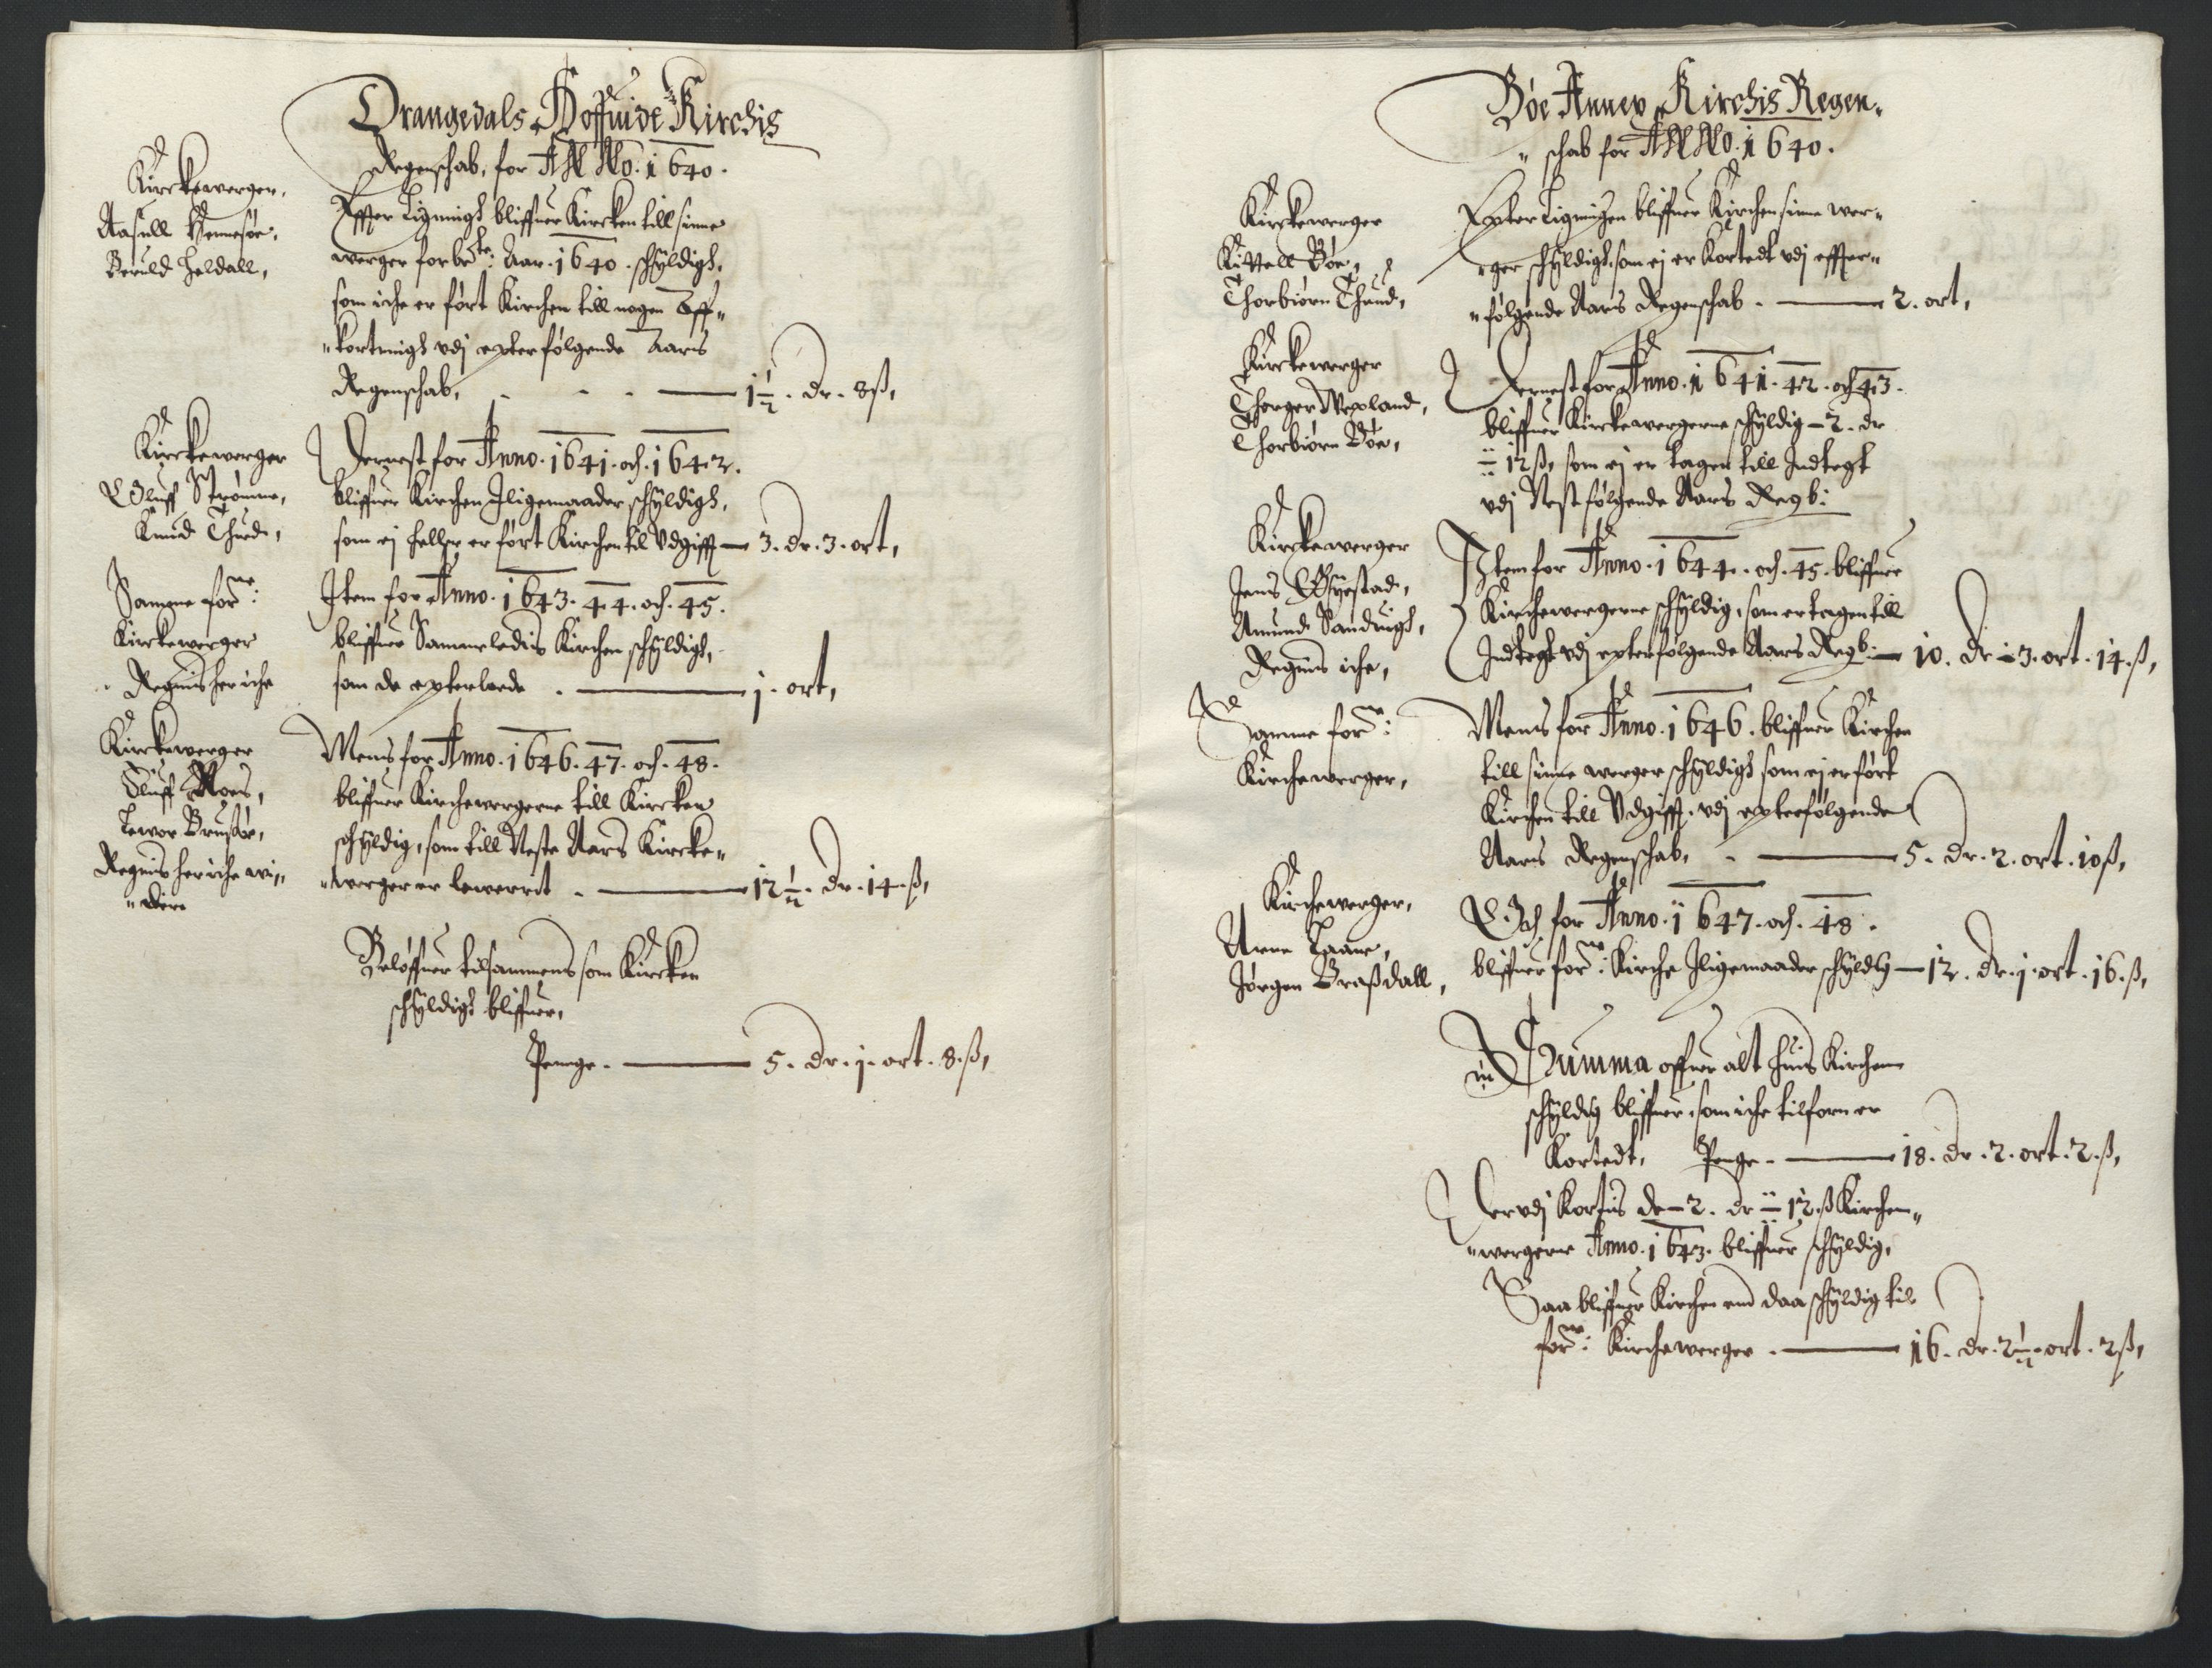 Drangedals Hoffuide Kirchis
Regenschab, for ANNO. 1640.
Kirckewerger,
Aasull Hemesøe,
Beruld Heldall,
Effter Ligningh bliffuer Kircken till sinne
werger forbete: Aar. 1640. schyldigh,
som iche er ført Kirchen till nogen Aff„
„kortningh udj epterfølgende Aars
Regenschab, - - - 1½. dr. 8 ß,
Kirckewerger
Oluff Strømme,
Knud Thuede,
Dernest for Anno. 1641. och. 1642.
bliffuer Kirchen Iligemaader schyldigh,
som ej heller er ført Kirchen til Udgifft — 3. dr. 3. ort,
Samme forne:
Kirckewerger
Regnis her iche
Item for Anno. 1643. 44. och. 45.
bliffuer Sammeledis Kirchen schyldigh,
som de epterloede . — j. ort,
Kirckewerger
Oluff Moes,
Tewor Brusøe,
Regnis her iche wi„
„dere
Mens for Anno. 1646. 47. och. 48.
bliffuer Kirchewergerne till Kircken
schyldig, som till Neste Aars Kircke„
„werger er lewerret . — 12½. dr. 14. ß,
Beløffuer tilsammens som Kircken
schyldigh bliffuer,
Penge. — 5. dr. j. ort. 8. ß,
Bøe Annex Kirchis Regen„
„schab for ANNO. 1640.
Kirckewerger
Kittell Bøe,
Thorbiørn Thued,
Epter Ligningen bliffuer Kirchen sinne wer„
„ger schyldigh, som ej er Kortedt udj effter„
„følgende Aars Regenschab . — 2. ort,
Kirckewerger
Therger Wepland,
Thorbiørn Bøe,
Dernest for Anno. 1641. 42. och 43.
bliffuer Kirckewergerne schyldig — 2. dr
÷ 12 ß, som ej er tagen till Indtegt
udj Nestfølgende Aars Regb:
Kirckewerger
Jens Øyestad,
Amund Sandwigh,
Regnis iche,
Item for Anno. 1644. och. 45. bliffuer
Kirchewergerne schyldig, som er tagen till
Indtegt udj epterfølgende Aars Regb: — 10. dr ÷ 3. ort. 14. ß,
Samme forne:
Kirchewerger,
Mens for Anno. 1646. bliffuer Kirchen
till sinne werger schyldigh som ej er ført
Kirchen till Udgifft. udj epterfølgende
Aars Regenschab, . — 5. dr. 2. ort. 10 ß,
Kirchewerger,
Arne Laane,
Jørgen Braßdall,
Och for Anno. 1647. och. 48.
bliffuer forne: Kirche Iligemaader schyldig — 12. dr. j. ort. 16. ß,
Summa offuer alt huis Kirchen
schyldig bliffuer, som iche tilforn er
Kortedt, Penge. — 18. dr. 2. ort. 2. ß,
Der udj Kortis de — 2. dr ÷ 12. ß Kirchen„
„wergerne Anno. 1643. bliffuer schyldig,
Saa bliffuer Kirchen end daa schyldig til
forne: Kirchewerger . — 16. dr. 2½. ort. 2 ß,